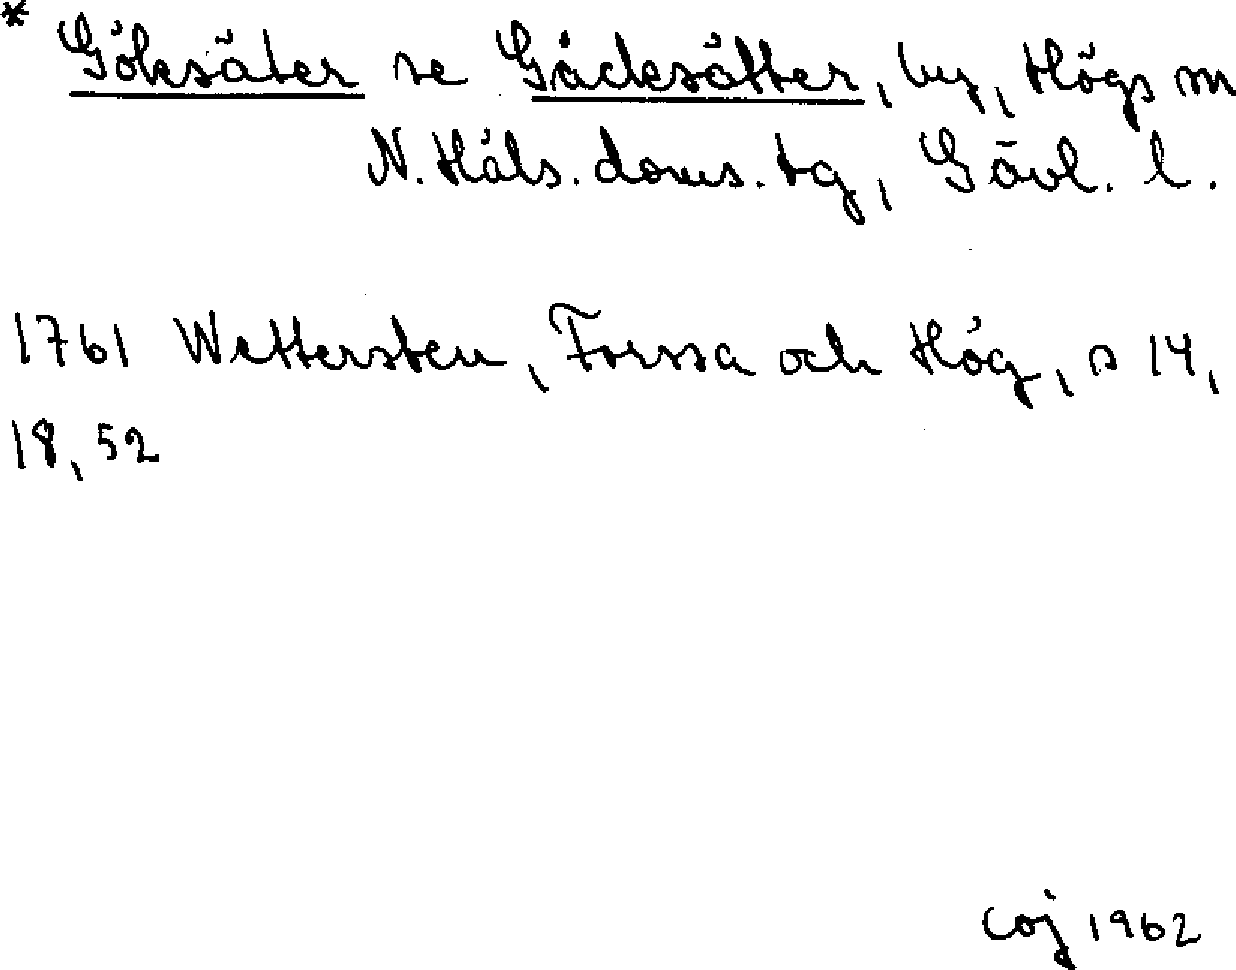 * Göksäter se Gäcksätter, by, Högs sn
N. Häls. doms. tg, Gävl. l.
1761 Wettersten, Forssa och Hög, s 14,
18, 52
coj 1962